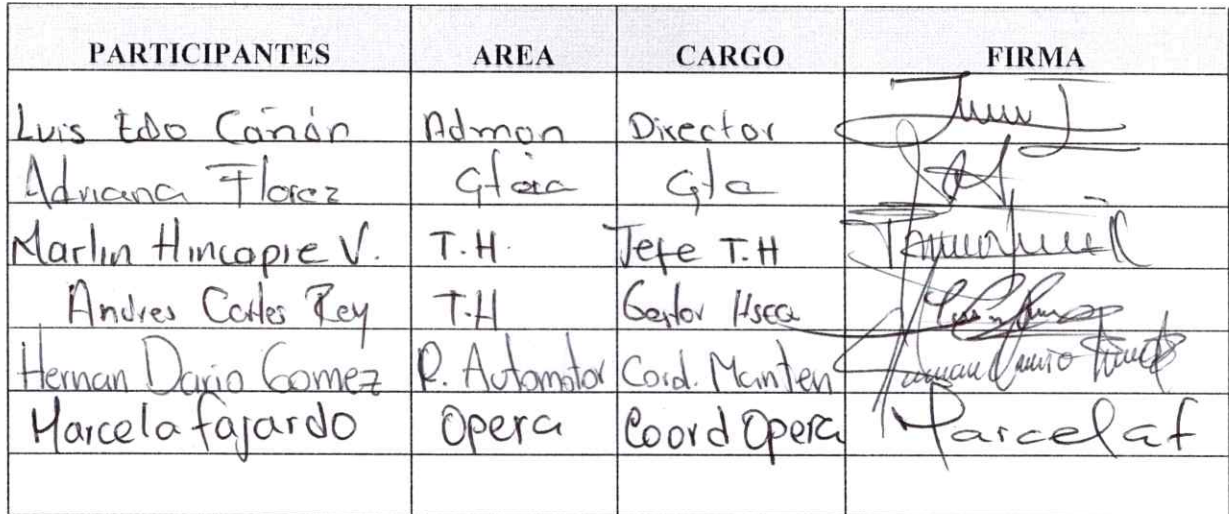 PARTICIPANTES AREA CARGO FIRMA
Luis Edo Cañón Admon Director
Adriana Florez Gtcia Gte
Marlin Hincapie V. T.H. Jefe T.H
Andres Cortes Rey T.H Gestor Hseq
Hernan Dario Gomez R. Automotor Cord. Manten
Marcela fajardo Opera Coord Opera Marcelaf